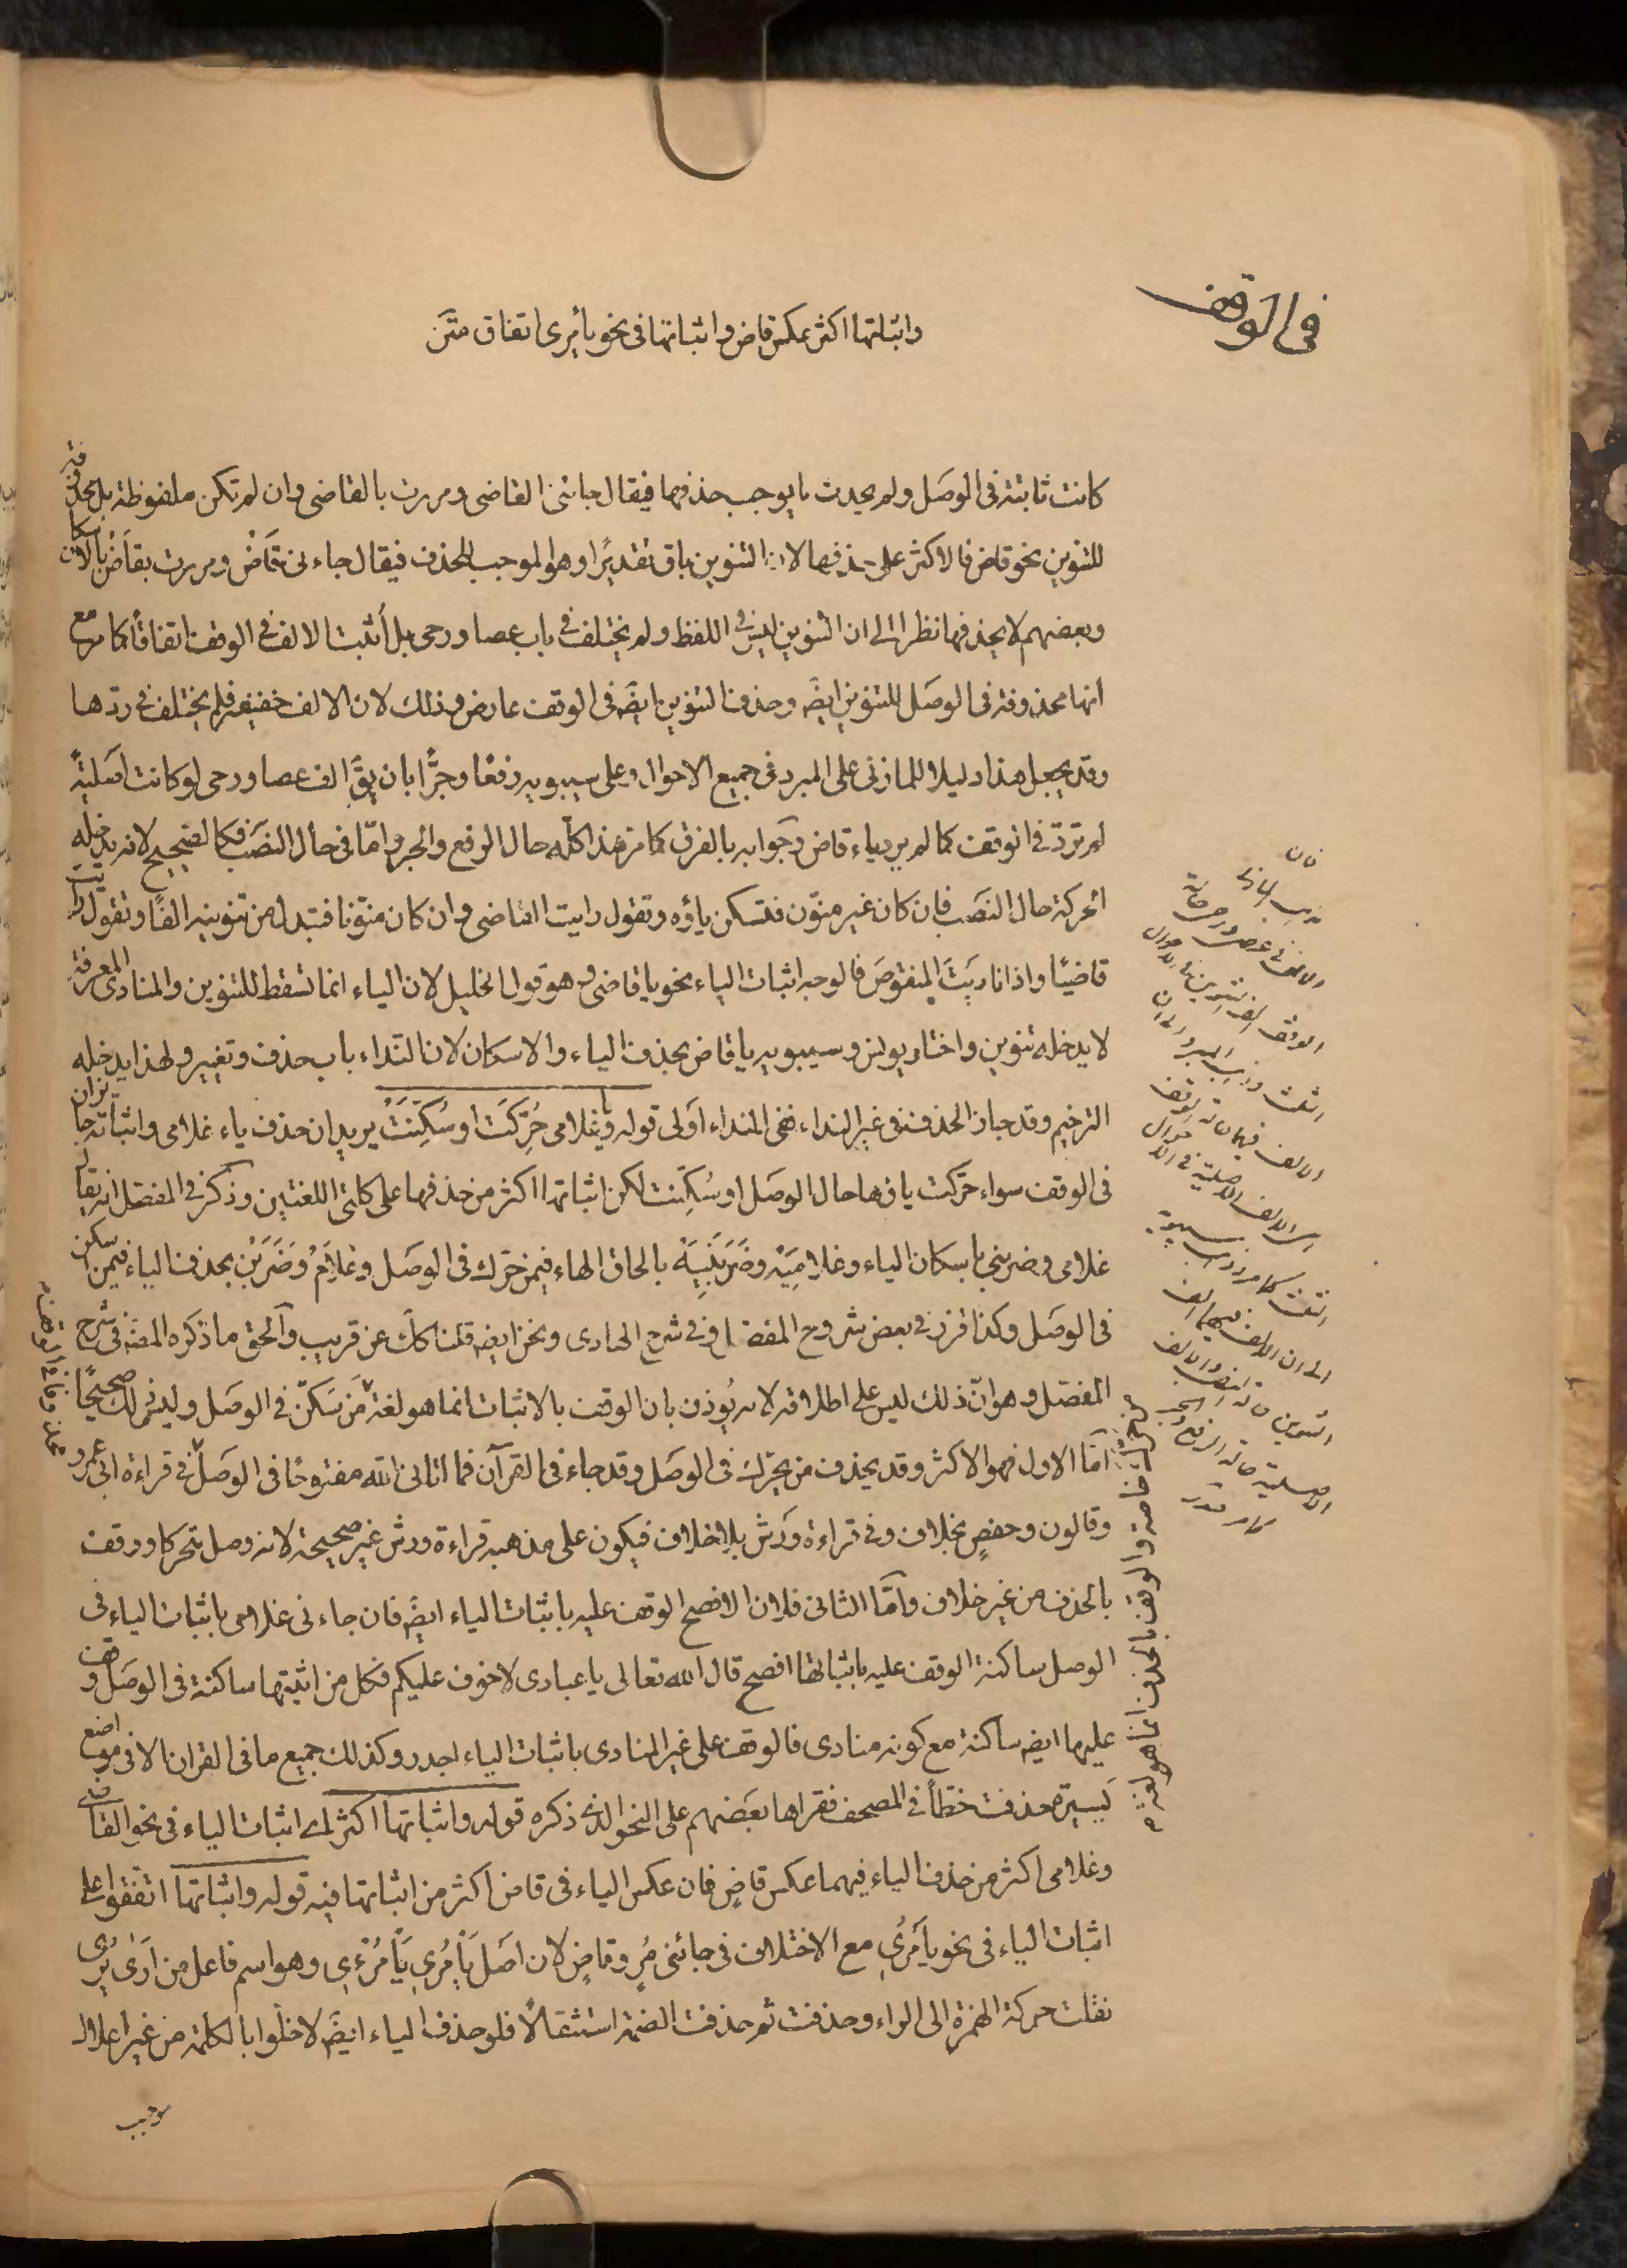 في الوقف
واثباتها اكثر عكس قاض واثباتها فى نحو يا مرى اتفاق متن
كانت ثابتة فى الوصل ولم يحدث ما يوجب حذفها فيقال جائنى القاضى ومررت بالقاضى وان لم تكن ملفوظة بل محذوفة
للتنوين نحو قاض فالاكثر على حذفها لان التنوين باق تقديرًا وهو الموجب للحذف فيقال جاءنى قاضْ ومررت بقاضْ بالاسكان
وبعضهم لا يحذفها نظرا الى ان التنوين ليس فى اللفظ ولم يختلف فى باب عصا ورحى بل أثبت الالف فى الوقف اتفاقًا كما مر مع
انها محذوفة فى الوصل للتنوين ايضًه وحذف التنوين ايضًه فى الوقف عارض وذلك لان الالف خفيفة فلم يختلف فى ردّها
وقد يجعل هذا دليلا للمازنى على المبرد فى جميع الاحوال وعلى سيبويه رفعًا وجرًّا بان يقَ الف عصا ورحى لو كانت اصليةً
لم تردّ فى الوقف كما لم يرد ياء قاض وجوابه بالفرق كما مر هذا كلّه حال الرفع والجر وامّا فى حال النصب فكالصحيح لانه يدخله
الحركة حال النصب فان كان غير منوّن فتسكن ياؤه وتقول رايت القاضى وان كان منوّنا فتبدل من تنوينه الفًا وتقول رايت
قاضيًا واذا ناديتَ المنقوصَ فالوجه اثبات الياء نحو يا قاضى وهو قول الخليل لان الياء انما تسقط للتنوين والمنادى المعرفة
لا يدخله تنوين واختار يونس وسيبويه يا قاض بحذف الياء والاسكان لان النداء باب حذف وتغيير ولهذا يدخله
الترخيم وقد جاز الحذف فى غير النداء ففى النداء اَولى قوله وغلامى حُرِّكَت او سُكِّنَتْ يريد ان حذف ياء غلامى واثباته جائزان
فى الوقف سواء حرّكت ياؤها حال الوصل او سُكّنت لكن اثباتها اكثر من حذفها على كلتى اللغتين وذكر فى المفصّل انه يقال
غلامى وضربنى باسكان الياء وغلامِيَهْ وضَرَبَنِيَهْ بالحاق الهاء فيمن حرّك فى الوصل وغلامْ وضَرَبَنْ بحذف الياء فيمن اسكن
فى الوصل وكذا قرّر فى بعض شروح المفصّل وفى شرح الهادى ونحن ايضه قلنا كك عن قريب والحق ما ذكره المصَ فى شرح
المفصّل وهو انّ ذلك ليس على اطلاقه لانه يُوذن بان الوقف بالاثبات انما هو لغة مَن سَكّن فى الوصل وليس ذلك صحيحًا
امّا الاول فهو الاكثر وقد يحذف من يحرّك فى الوصل وقد جاء فى القرآن فما اتانى الله مفتوحًا فى الوصل فى قراءة ابى عمرو
وقالون وحفصٍ بخلاف وفى قراءة ورش بلا خلاف فيكون على مذهبه قراءة ورش غير صحيحة لانه وصل متحركا ووقف
بالحذف من غير خلاف وامّا الثانى فلان الافصح الوقف عليه باثبات الياء ايضه فان جاءنى غلامى باثبات الياء فى
الوصل ساكنة الوقف عليه باثباتها افصح قال الله تعالى يا عبادى لا خوف عليكم فكل من اثبتها ساكنة فى الوصل وقف
عليها ايضه ساكنة مع كونه منادى فالوقف على غير المنادى باثبات الياء اجدر وكذلك جميع ما فى القران الا فى مواضع
يَسيرة حذفت خطّاً فى المصحف فقراها بعضهم على النحو الذى ذكره قوله واثباتها اكثر اے اثبات الياء فى نحو القاضى
وغلامى اكثر من حذف الياء فيهما عكس قاضٍ فان عكس الياء فى قاض اكثر من اثباتها فيه قوله واثباتها اتفقوا على
اثبات الياء فى نحو يا مُرِي مع الاختلاف فى جائنى مُرٍ وقاضٍ لان اصل يا مُرِي يا مُرْءِي وهو اسم فاعل من اَرَى يُرِى
نقلت حركة الهمزة الى الراء وحذفت ثم حذفت الضمة استثقالًا فلو حذف الياء ايضًه لاخلّوا بالكلمة من غير اعلال
موجب